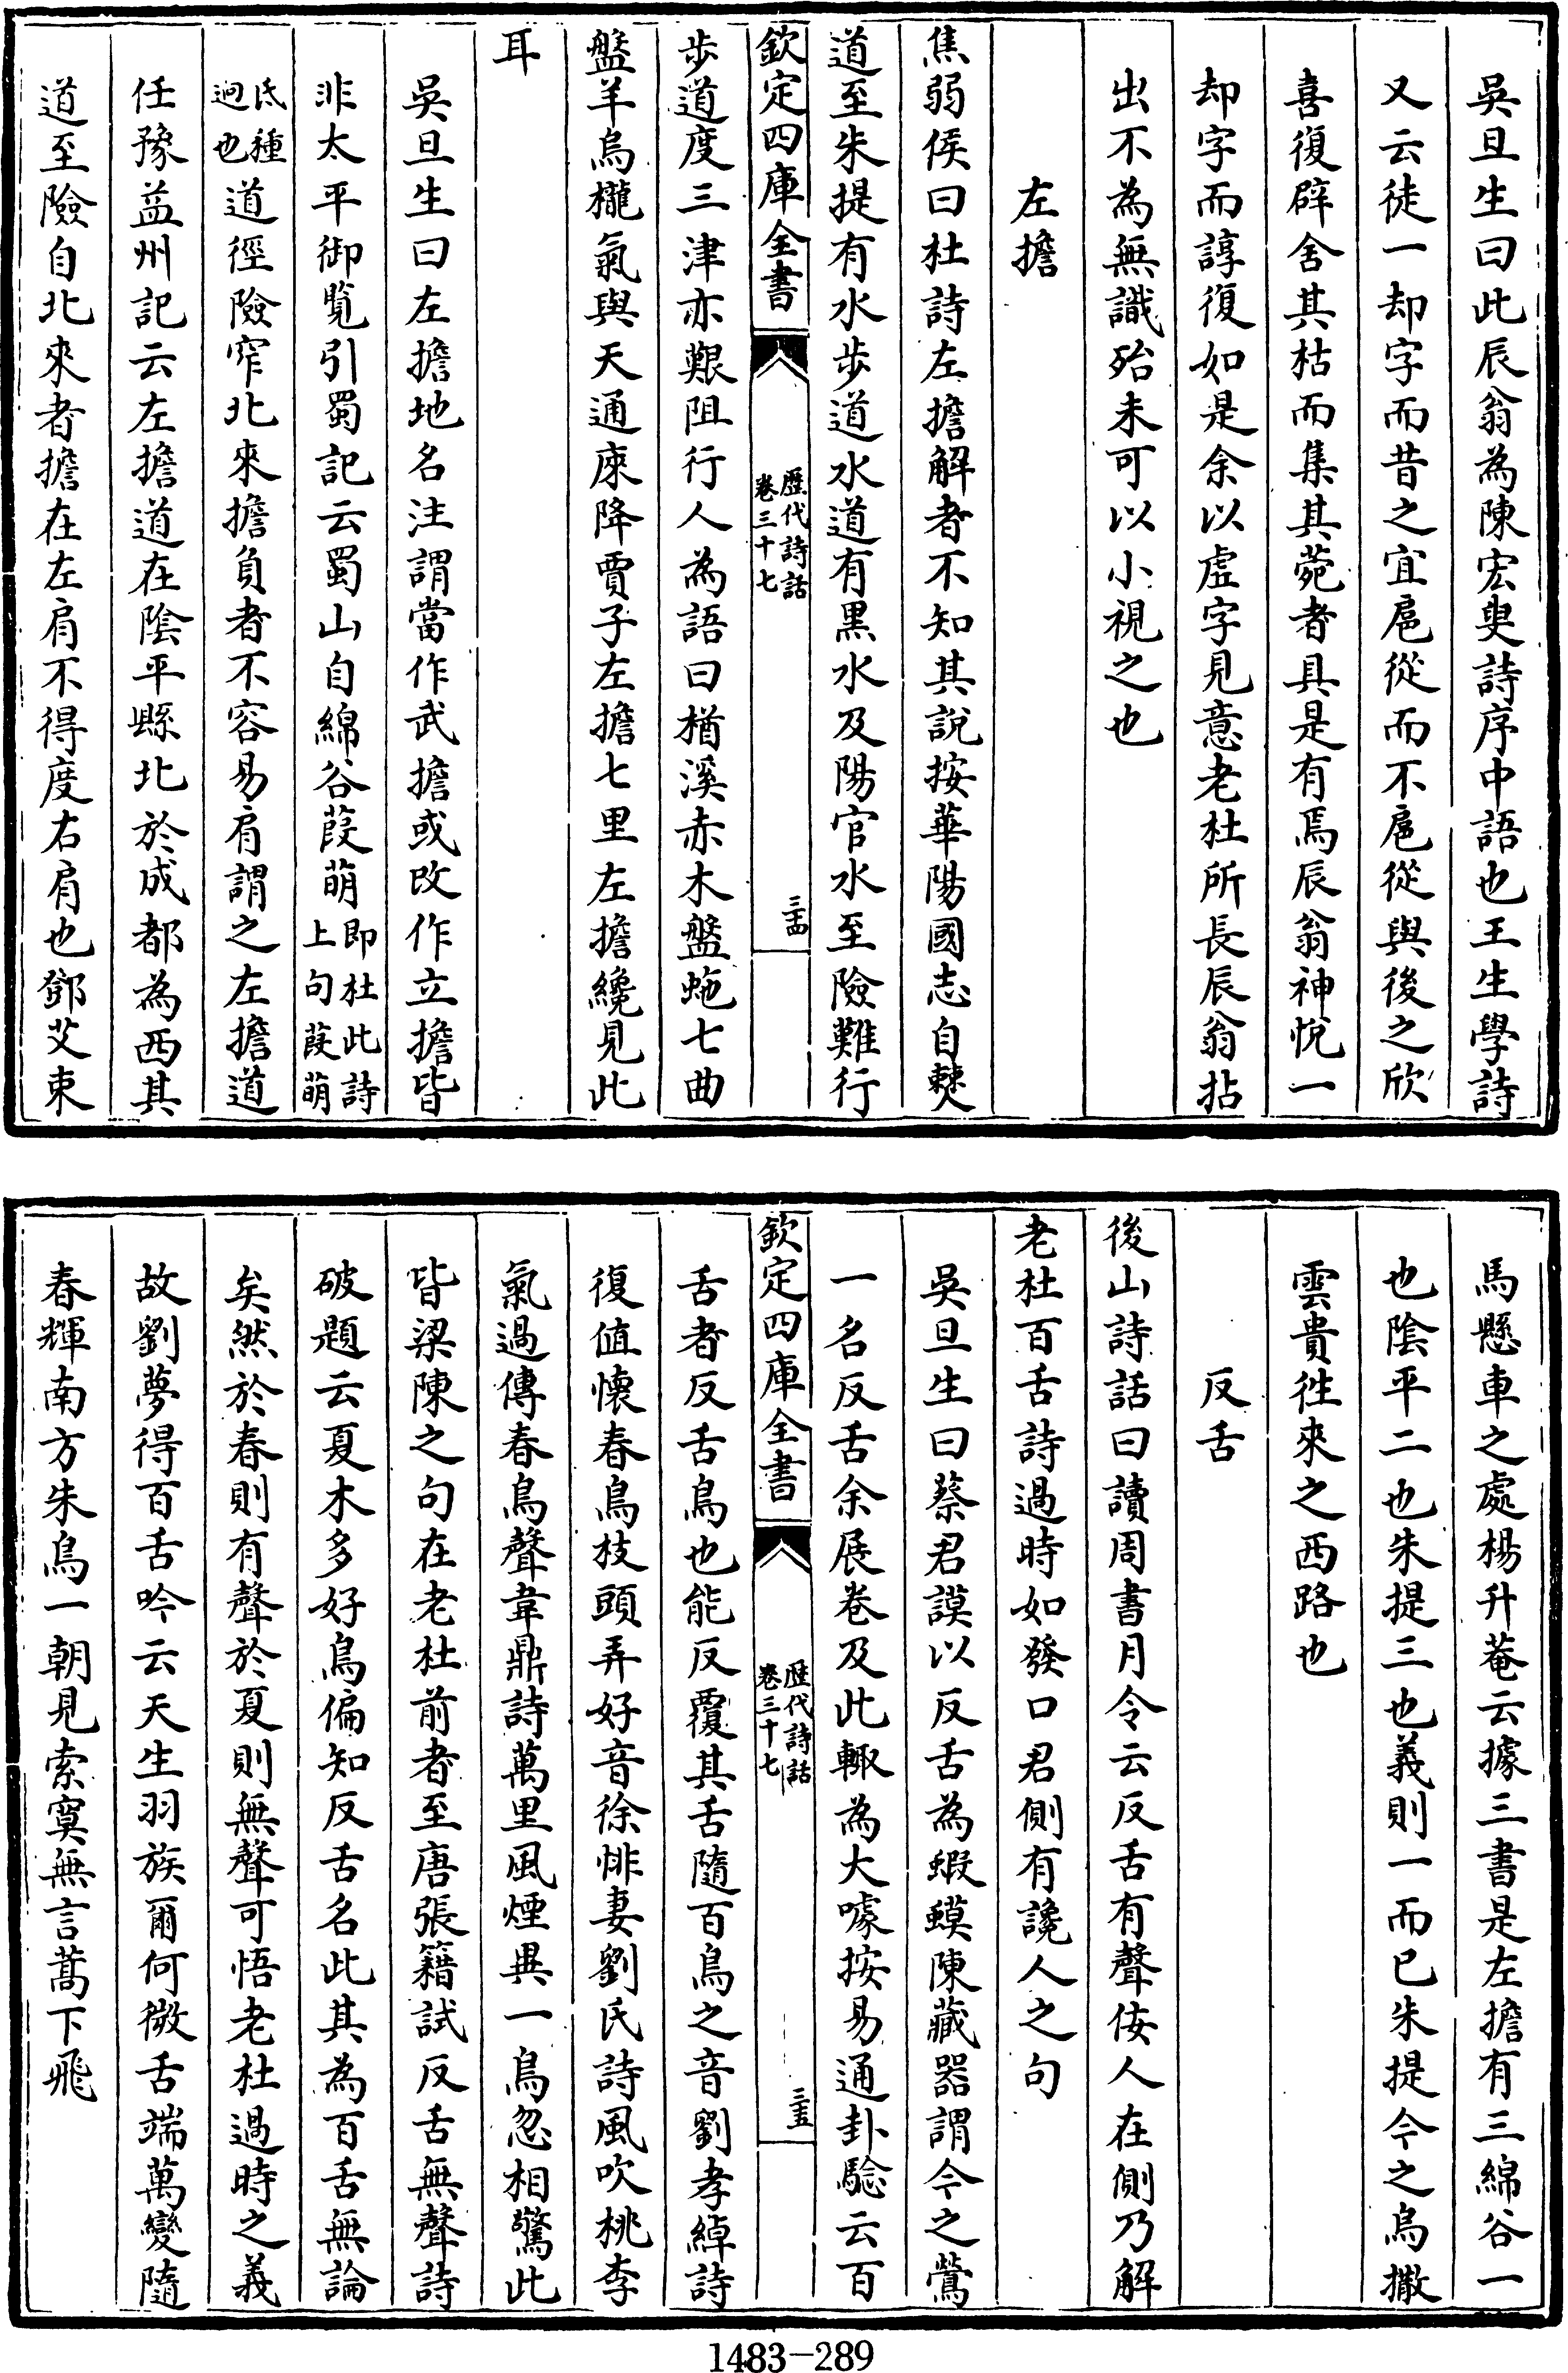 吳旦生曰此辰翁為陳宏叟詩序中語也王生學詩
又云徒一却字而昔之宜扈從而不扈從與後之欣
喜復辟舍其枯而集其菀者具是有焉辰翁神悅一
却字而諄復如是余以虚字見意老杜所長辰翁拈
出不為無識殆未可以小視之也
左擔
焦弱侯曰杜詩左擔解者不知其說按華陽國志自僰
道至朱提有水步道水道有黒水及陽官水至險難行
欽定四庫全書
歴代詩話
卷三十七
三四
步道度三津亦艱阻行人為語曰楢溪赤木盤虵七曲
盤羊烏櫳氣與天通庲降賈子左擔七里左擔纔見此
耳
吳旦生曰左擔地名注謂當作武擔或改作立擔皆
非太平御覧引蜀記云蜀山自綿谷葭萌即杜此詩上句葭萌
氐種迥也道徑險窄北來擔負者不容易肩謂之左擔道
任豫益州記云左擔道在陰平縣北於成都為西其
道至險自北來者擔在左肩不得度右肩也鄧艾束
馬懸車之處楊升菴云據三書是左擔有三綿谷一
也陰平二也朱提三也義則一而已朱提今之烏撒
雲貴徃來之西路也
反舌
後山詩話曰讀周書月令云反舌有聲佞人在側乃解
老杜百舌詩過時如發口君側有讒人之句
吳旦生曰蔡君謨以反舌為蝦蟇陳藏器謂今之鶯
一名反舌余展卷及此輙為大噱按易通卦騐云百
欽定四庫全書
歴代詩話
卷三十七
三五
舌者反舌鳥也能反覆其舌隨百鳥之音劉孝綽詩
復值懷春鳥枝頭弄好音徐悱妻劉氏詩風吹桃李
氣過傳春鳥聲韋鼎詩萬里風煙異一鳥忽相驚此
皆梁陳之句在老杜前者至唐張籍試反舌無聲詩
破題云夏木多好鳥偏知反舌名此其為百舌無論
矣然於春則有聲於夏則無聲可悟老杜過時之義
故劉夢得百舌吟云天生羽族爾何微舌端萬變隨
春輝南方朱鳥一朝見索寞無言蒿下飛
1483-289